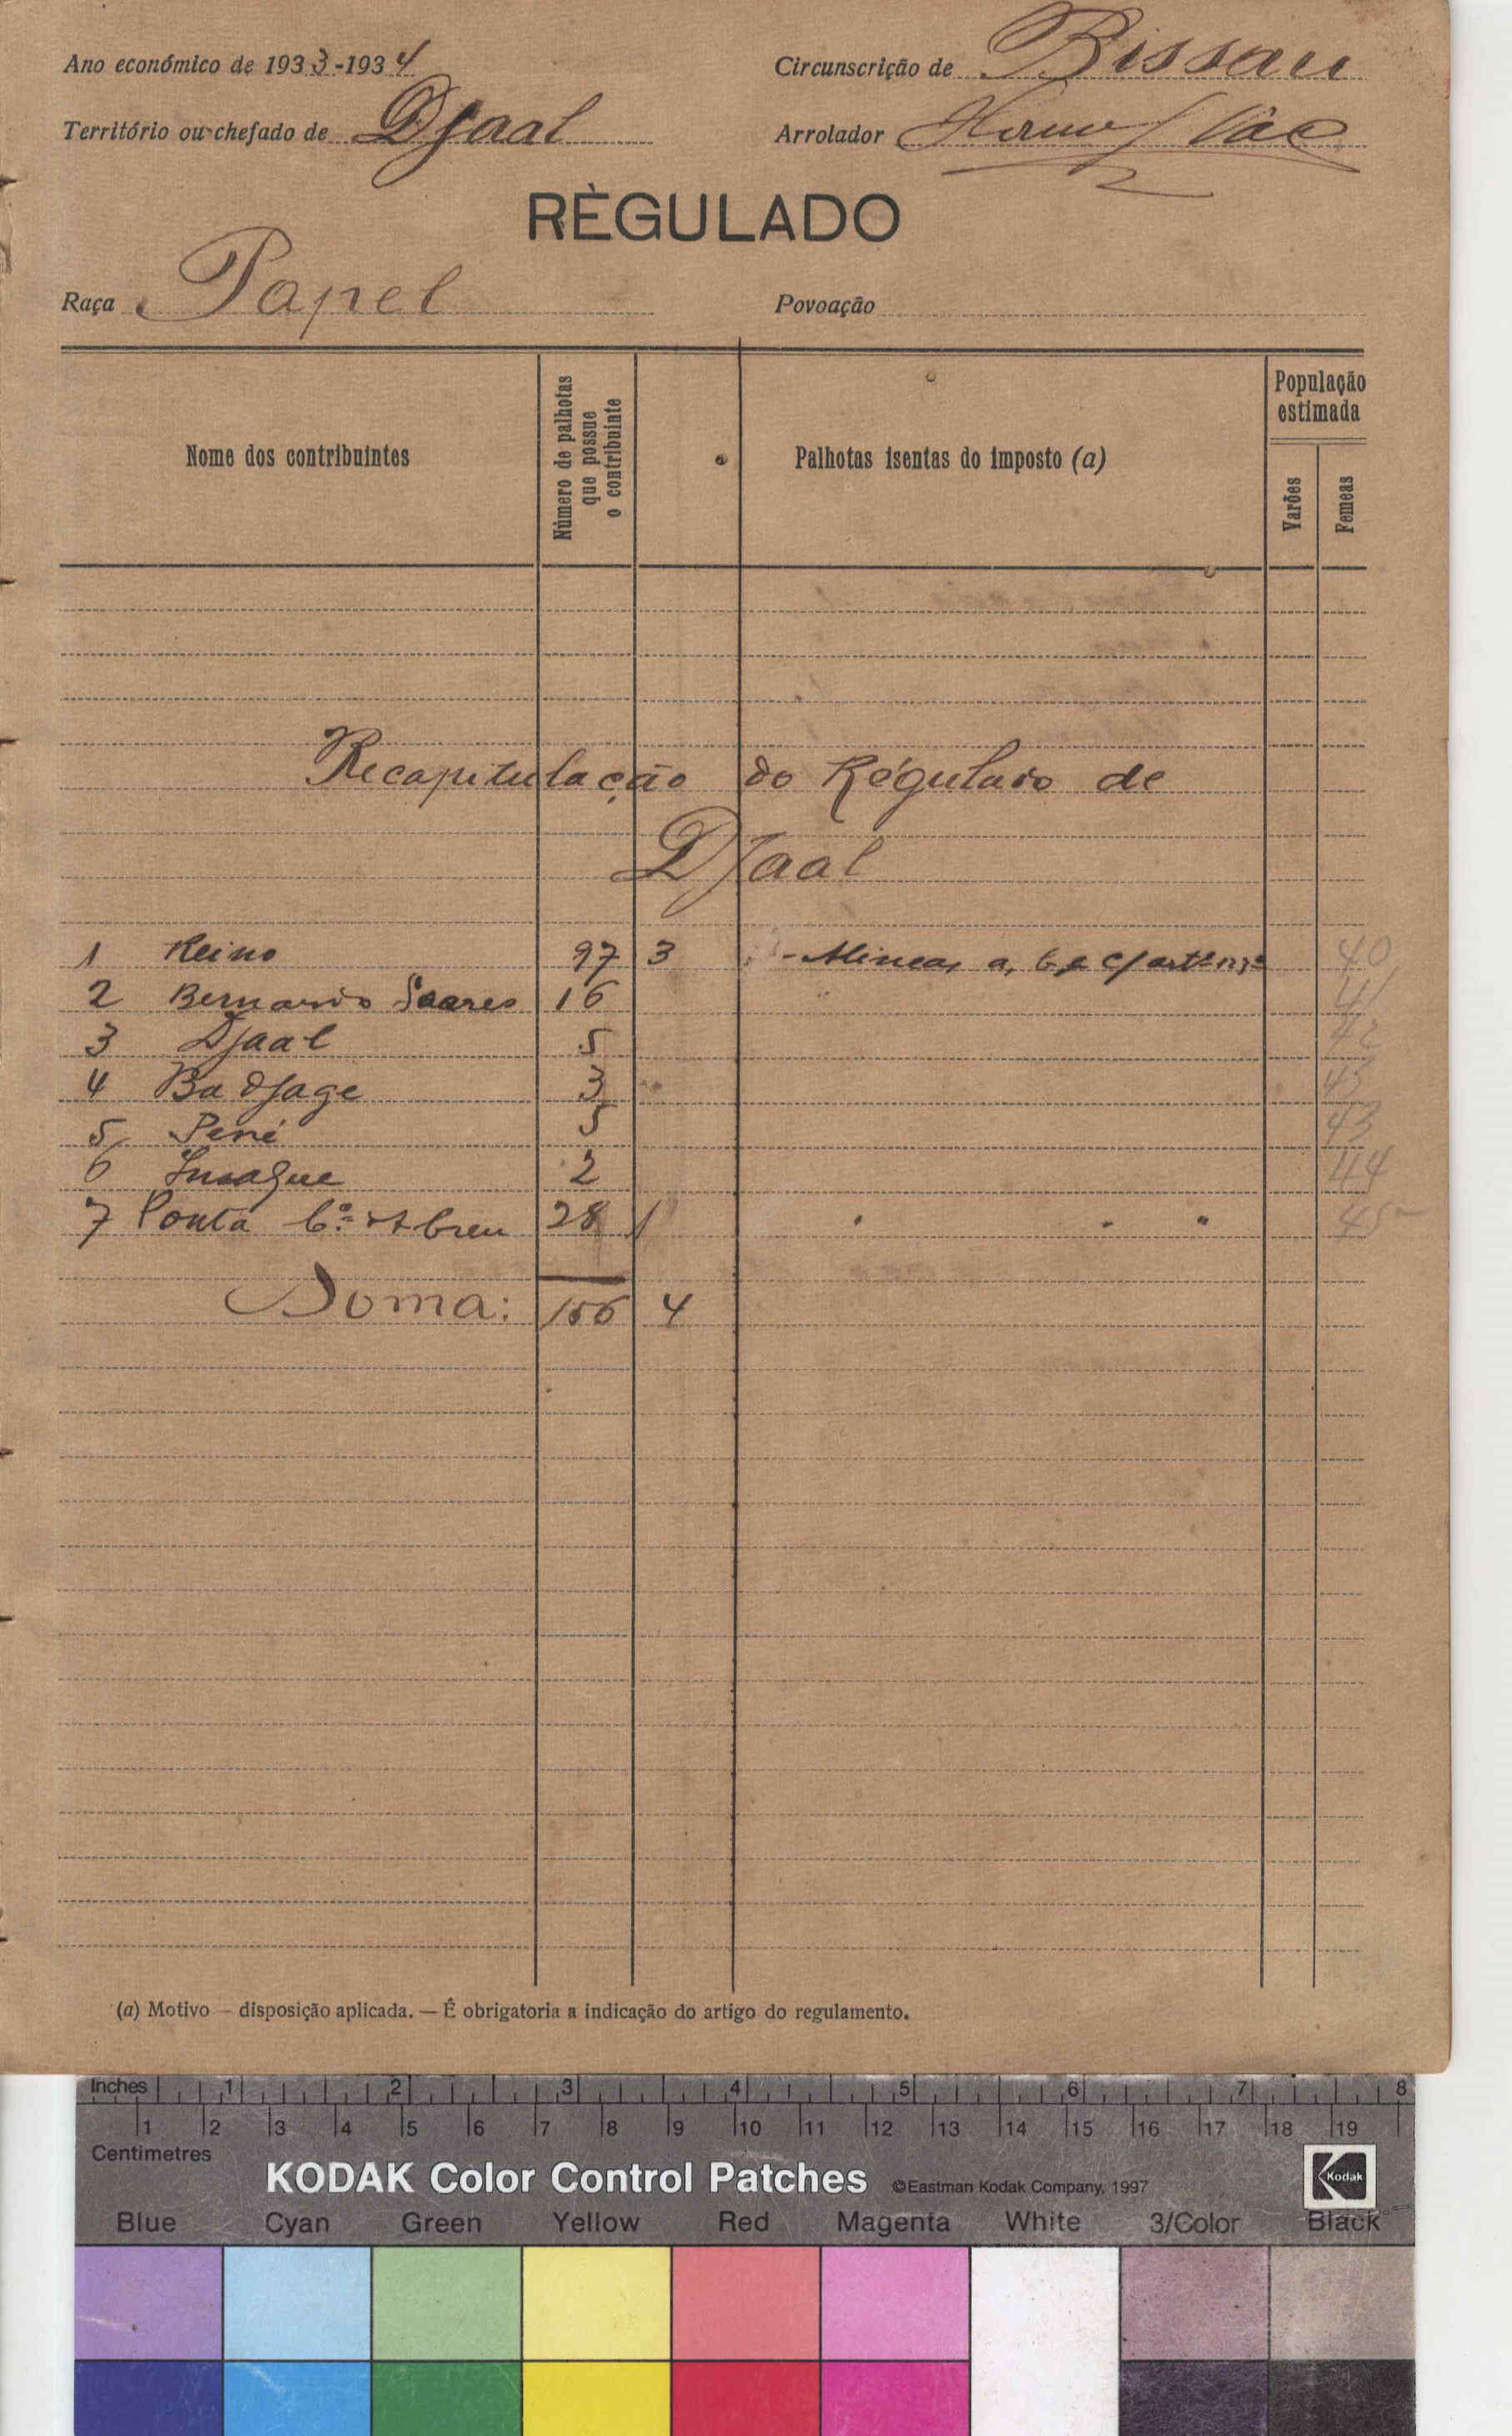 Ano económico de 1933-1934
Circunscrição de Bissau
Território ou chefado de Djaal
Arrolador
RÈGULADO
Raça Papel
Povoação
Nome dos contribuintes
Número de palhotas que possue o contribuinte
Palhotas isentas do imposto (a)
População estimada
Varões
Femeas
Recapitulação do Régulado de
Djaal
1 Reino 97 3 - Alineas a, b e c/ artº 40
2 Bernardo Soares 16 41
3 Djaal 5 42
4 Badjage 3 43
5 Pené 5 43
6 2 44
7 Ponta Cº Abreu 28 1 " " " 45
Soma: 156 4
(a) Motivo — disposição aplicada. — É obrigatoria a indicação do artigo do regulamento.
Inches 1 2 3 4 5 6 7 8
1 2 3 4 5 6 7 8 9 10 11 12 13 14 15 16 17 18 19
Centimetres
KODAK Color Control Patches ©Eastman Kodak Company, 1997 Kodak
Blue Cyan Green Yellow Red Magenta White 3/Color Black